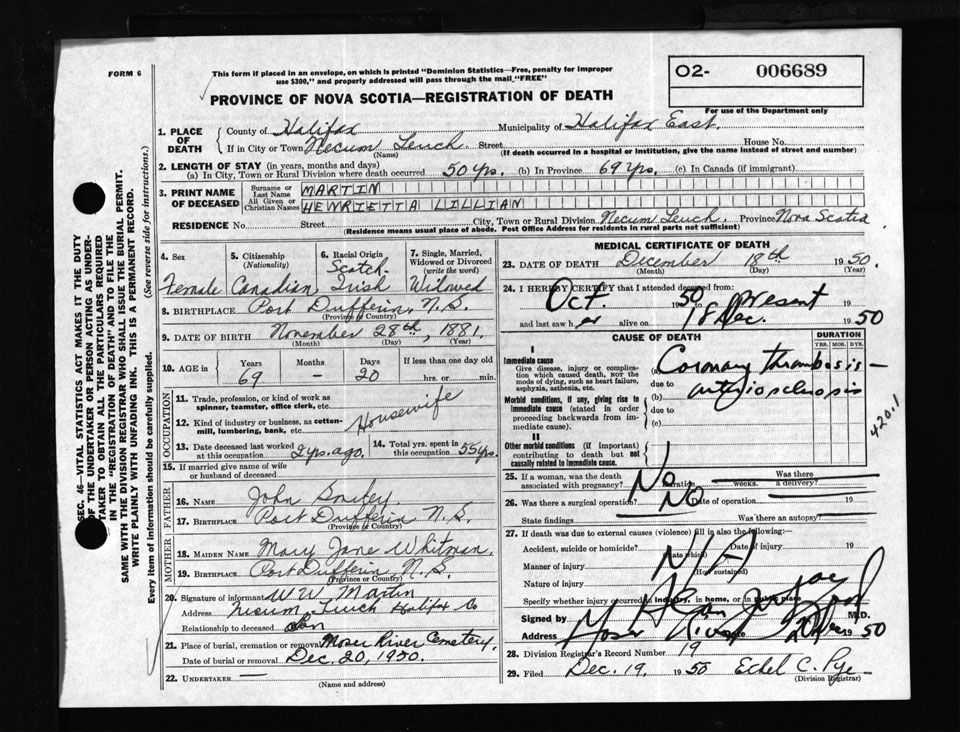 FORM 6
This form if placed in an envelope, on which is printed "Dominion Statistics—Free, penalty for improper
use $300," and properly addressed will pass through the mail, "FREE"
PROVINCE OF NOVA SCOTIA—REGISTRATION OF DEATH
O2- 006689
For use of the Department only
SEC. 46—VITAL STATISTICS ACT MAKES IT THE DUTY
OF THE UNDERTAKER OR PERSON ACTING AS UNDER-
TAKER TO OBTAIN ALL THE PARTICULARS REQUIRED
IN THE "REGISTRATION OF DEATH" AND TO FILE THE
SAME WITH THE DIVISION REGISTRAR WHO SHALL ISSUE THE BURIAL PERMIT.
WRITE PLAINLY WITH UNFADING INK. THIS IS A PERMANENT RECORD.
Every item of information should be carefully supplied. (See reverse side for instructions.)
1. PLACE OF DEATH
County of Halifax Municipality of Halifax East.
If in City or Town Necum Teuch Street House No.
(Name) (If death occurred in a hospital or institution, give the name instead of street and number)
2. LENGTH OF STAY (in years, months and days)
(a) In City, Town or Rural Division where death occurred 50 yrs. (b) In Province 69 yrs. (c) In Canada (if immigrant)
3. PRINT NAME OF DECEASED
Surname or Last Name MARTIN
All Given or Christian Names HENRIETTA LILLIAN
RESIDENCE No. Street City, Town or Rural Division Necum Teuch. Province Nova Scotia
(Residence means usual place of abode. Post Office Address for residents in rural parts not sufficient)
4. Sex Female
5. Citizenship (Nationality) Canadian
6. Racial Origin Scotch Irish
7. Single, Married, Widowed or Divorced (write the word) Widowed
8. BIRTHPLACE Port Dufferin, N.S.
(Province or Country)
9. DATE OF BIRTH November 28th, 1881.
(Month) (Day) (Year)
10. AGE IN Years 69 Months — Days 20 If less than one day old hrs. or min.
OCCUPATION
11. Trade, profession, or kind of work as
spinner, teamster, office clerk, etc.
12. Kind of industry or business, as cotton-
mill, lumbering, bank, etc. Housewife
13. Date deceased last worked at this occupation 2 yrs. ago.
14. Total yrs. spent in this occupation 55 yrs.
15. If married give name of wife
or husband of deceased
FATHER
16. NAME John Smiley
17. BIRTHPLACE Port Dufferin N.S.
(Province or Country)
MOTHER
18. MAIDEN NAME Mary Jane Whitman.
19. BIRTHPLACE Port Dufferin, N.S.
(Province or Country)
20. Signature of informant W W Martin
Address Necum Teuch Halifax Co
Relationship to deceased Son
21. Place of burial, cremation or removal Moser River Cemetery.
Date of burial or removal Dec. 20, 1950.
22. UNDERTAKER —
(Name and address)
MEDICAL CERTIFICATE OF DEATH
23. DATE OF DEATH December 18th 1950.
(Month) (Day) (Year)
24. I HEREBY CERTIFY that I attended deceased from
Oct 50 to Present 19
and last saw her alive on 18 Dec. 1950
CAUSE OF DEATH
DURATION
YRS. MOS. DYS.
I
Immediate cause
Give disease, injury or complica-
tion which caused death, NOT the
mode of dying, such as heart failure,
asphyxia, asthenia, etc.
(a) Coronary thrombosis —
due to
Morbid conditions, if any, giving rise to
immediate cause (stated in order
proceeding backwards from im-
mediate cause).
(b)
due to
(c)
420.1
II
Other morbid conditions (if important)
contributing to death but not
causally related to immediate cause.
25. If a woman, was the death associated with pregnancy? No Duration weeks. Was there a delivery?
26. Was there a surgical operation? No Date of operation 19
State findings Was there an autopsy?
27. If death was due to external causes (violence) fill in also the following:—
Accident, suicide or homicide? Date of injury 19
(State which)
Manner of injury N/A
(How sustained)
Nature of injury
Specify whether injury occurred in industry, in home, or in public place
Signed by M.D.
Address Moser River 20 Dec 1950
28. Division Registrar's Record Number 19
29. Filed Dec. 19 1950 Ethel C. Pye
(Division Registrar)